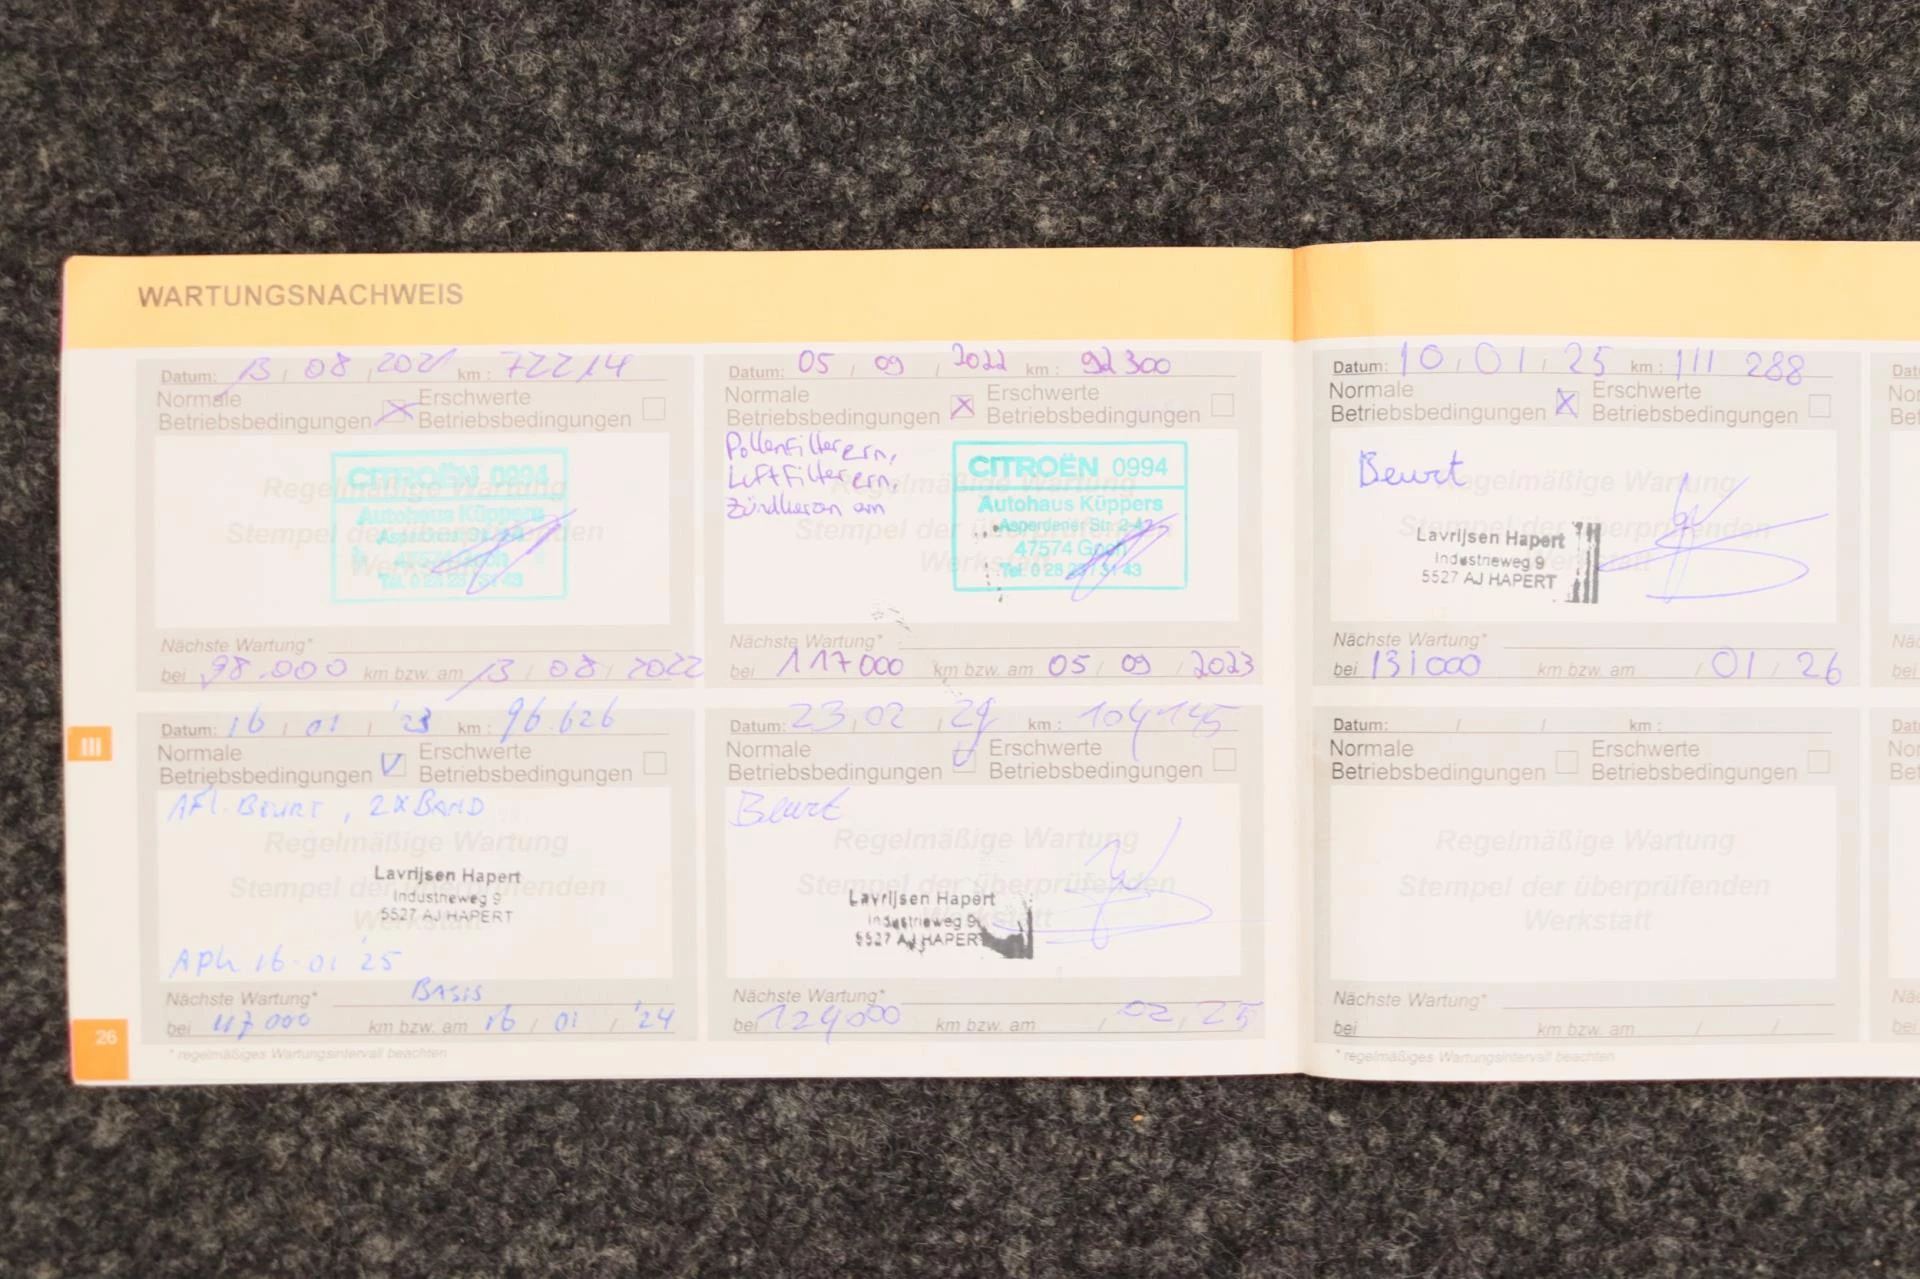 WARTUNGSNACHWEIS
Datum: 13 / 08 / 2021 km : 72214
Normale Betriebsbedingungen Erschwerte Betriebsbedingungen
Regelmäßige Wartung
Stempel der überprüfenden
Werkstatt
CITROËN 0994
Autohaus Küppers
Asperdener Str. 2-42
47574 Goch
Tel. 0 28 23 / 31 43
Nächste Wartung*
bei 98.000 km bzw. am 13 / 08 / 2022
Datum: 05 / 09 / 2022 km : 92300
Normale Betriebsbedingungen Erschwerte Betriebsbedingungen
Pollenfilter ern,
Luftfilter ern,
Zündkerzen ern
Regelmäßige Wartung
Stempel der überprüfenden
Werkstatt
CITROËN 0994
Autohaus Küppers
Asperdener Str. 2-42
47574 Goch
Tel. 0 28 23 / 31 43
Nächste Wartung*
bei 117000 km bzw. am 05 / 09 / 2023
Datum: 16 / 01 / '23 km : 96.626
Normale Betriebsbedingungen Erschwerte Betriebsbedingungen
AFL. BEURT, 2X BAND
Regelmäßige Wartung
Stempel der überprüfenden
Werkstatt
Lavrijsen Hapert
Industrieweg 9
5527 AJ HAPERT
APK 16-01 '25
Nächste Wartung* BASIS
bei 117000 km bzw. am 16 / 01 / '24
Datum: 23 / 02 / 24 km : 104145
Normale Betriebsbedingungen Erschwerte Betriebsbedingungen
Beurt
Regelmäßige Wartung
Stempel der überprüfenden
Werkstatt
Lavrijsen Hapert
Industrieweg 9
5527 AJ HAPERT
Nächste Wartung*
bei 124000 km bzw. am / 02 / 25
* regelmäßiges Wartungsintervall beachten
III
26
Datum: 10 / 01 / 25 km : 111 288
Normale Betriebsbedingungen Erschwerte Betriebsbedingungen
Beurt
Regelmäßige Wartung
Stempel der überprüfenden
Werkstatt
Lavrijsen Hapert
Industrieweg 9
5527 AJ HAPERT
Nächste Wartung*
bei 131000 km bzw. am / 01 / 26
Datum: / / km :
Normale Betriebsbedingungen Erschwerte Betriebsbedingungen
Regelmäßige Wartung
Stempel der überprüfenden
Werkstatt
Nächste Wartung*
bei km bzw. am / /
* regelmäßiges Wartungsintervall beachten